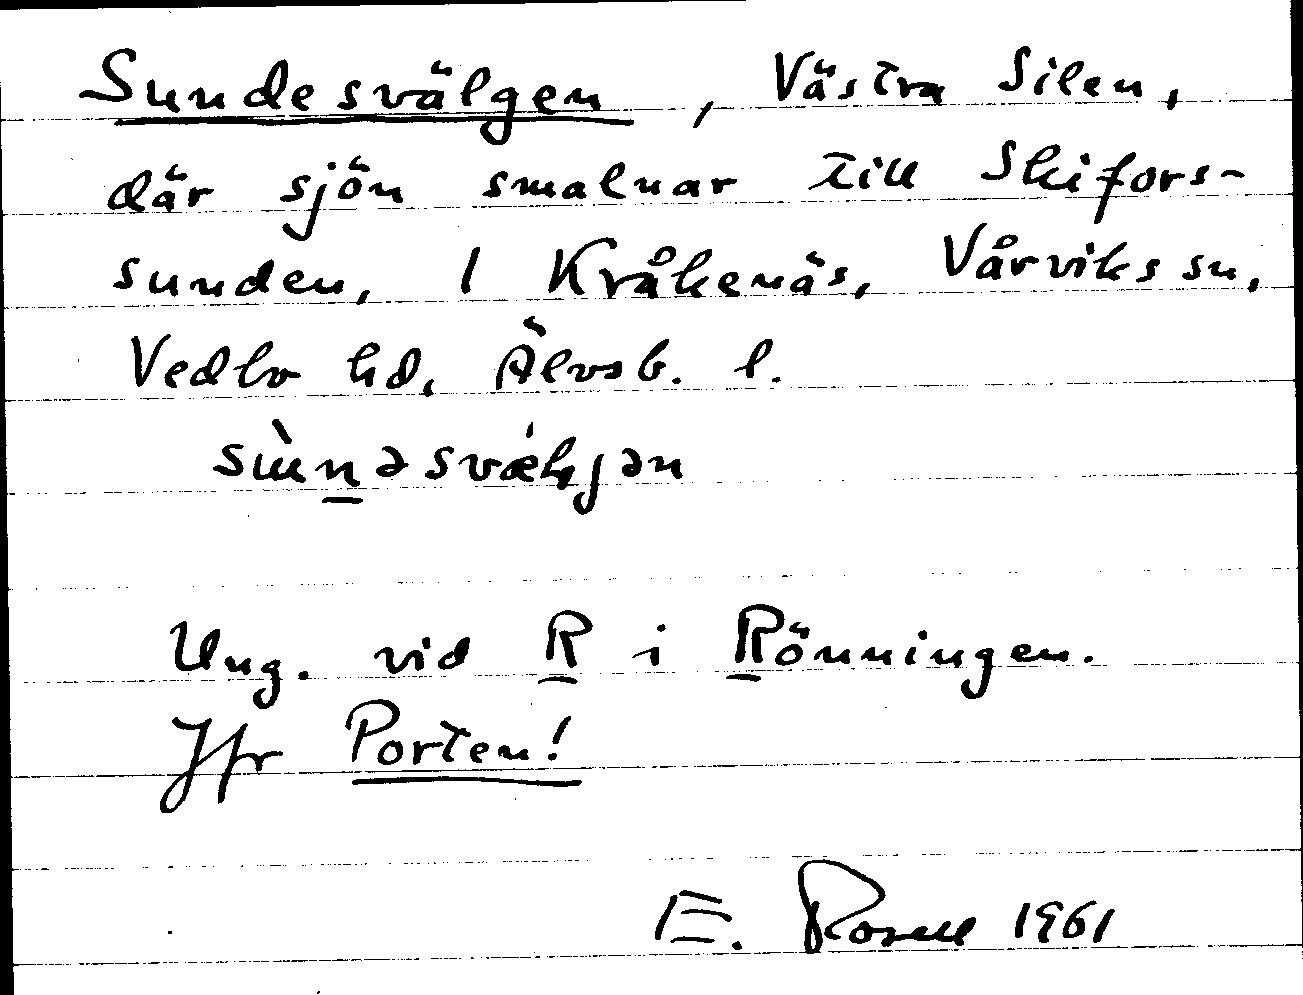 Sundesvälgen, Västra Silen,
där sjön smalnar till Skifors-
sunden, 1 Kråkenäs, Vårviks sn,
Vedbo hd, Älvsb. l.
Ung. vid R i Rönningen.
Jfr Porten!
E. Rosell 1961